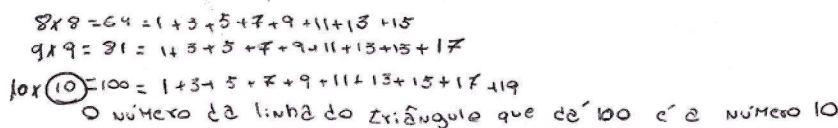 8x8=64=1+3+5+7+9+11+13+15
9x9=81=1+3+5+7+9+11+13+15+17
10x10=100=1+3+5+7+9+11+13+15+17+19
O número da linha do triângulo que dá 100 é a número 10